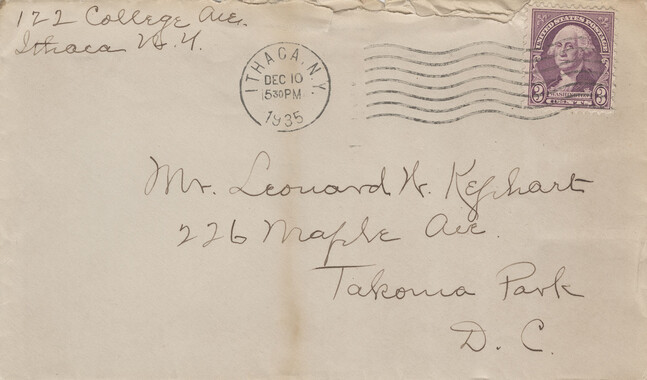 122 College Ave.
Ithaca N.Y.
ITHACA, N.Y.
DEC 10
530PM
1935
UNITED STATES POSTAGE
3 WASHINGTON 3
Mr. Leonard W. Kephart
226 Maple Ave.
Takoma Park
D. C.